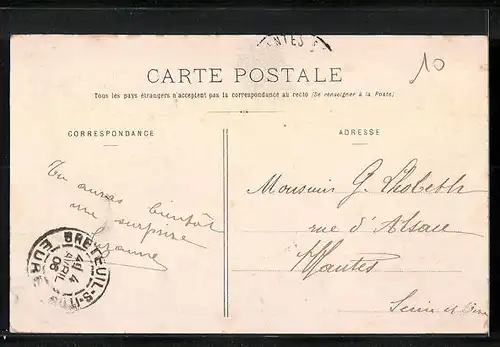 NTES
10
CARTE POSTALE
Tous les pays étrangers n'acceptent pas la correspondance au recto (Se renseigner à la Poste)
CORRESPONDANCE
ADRESSE
Tu auras bientôt
une surprise
Suzanne
BRETEUIL-S-ITON
4
AVRIL
06
EURE
Monsieur G.
rue d'Alsace
Mantes
Seine et Oise